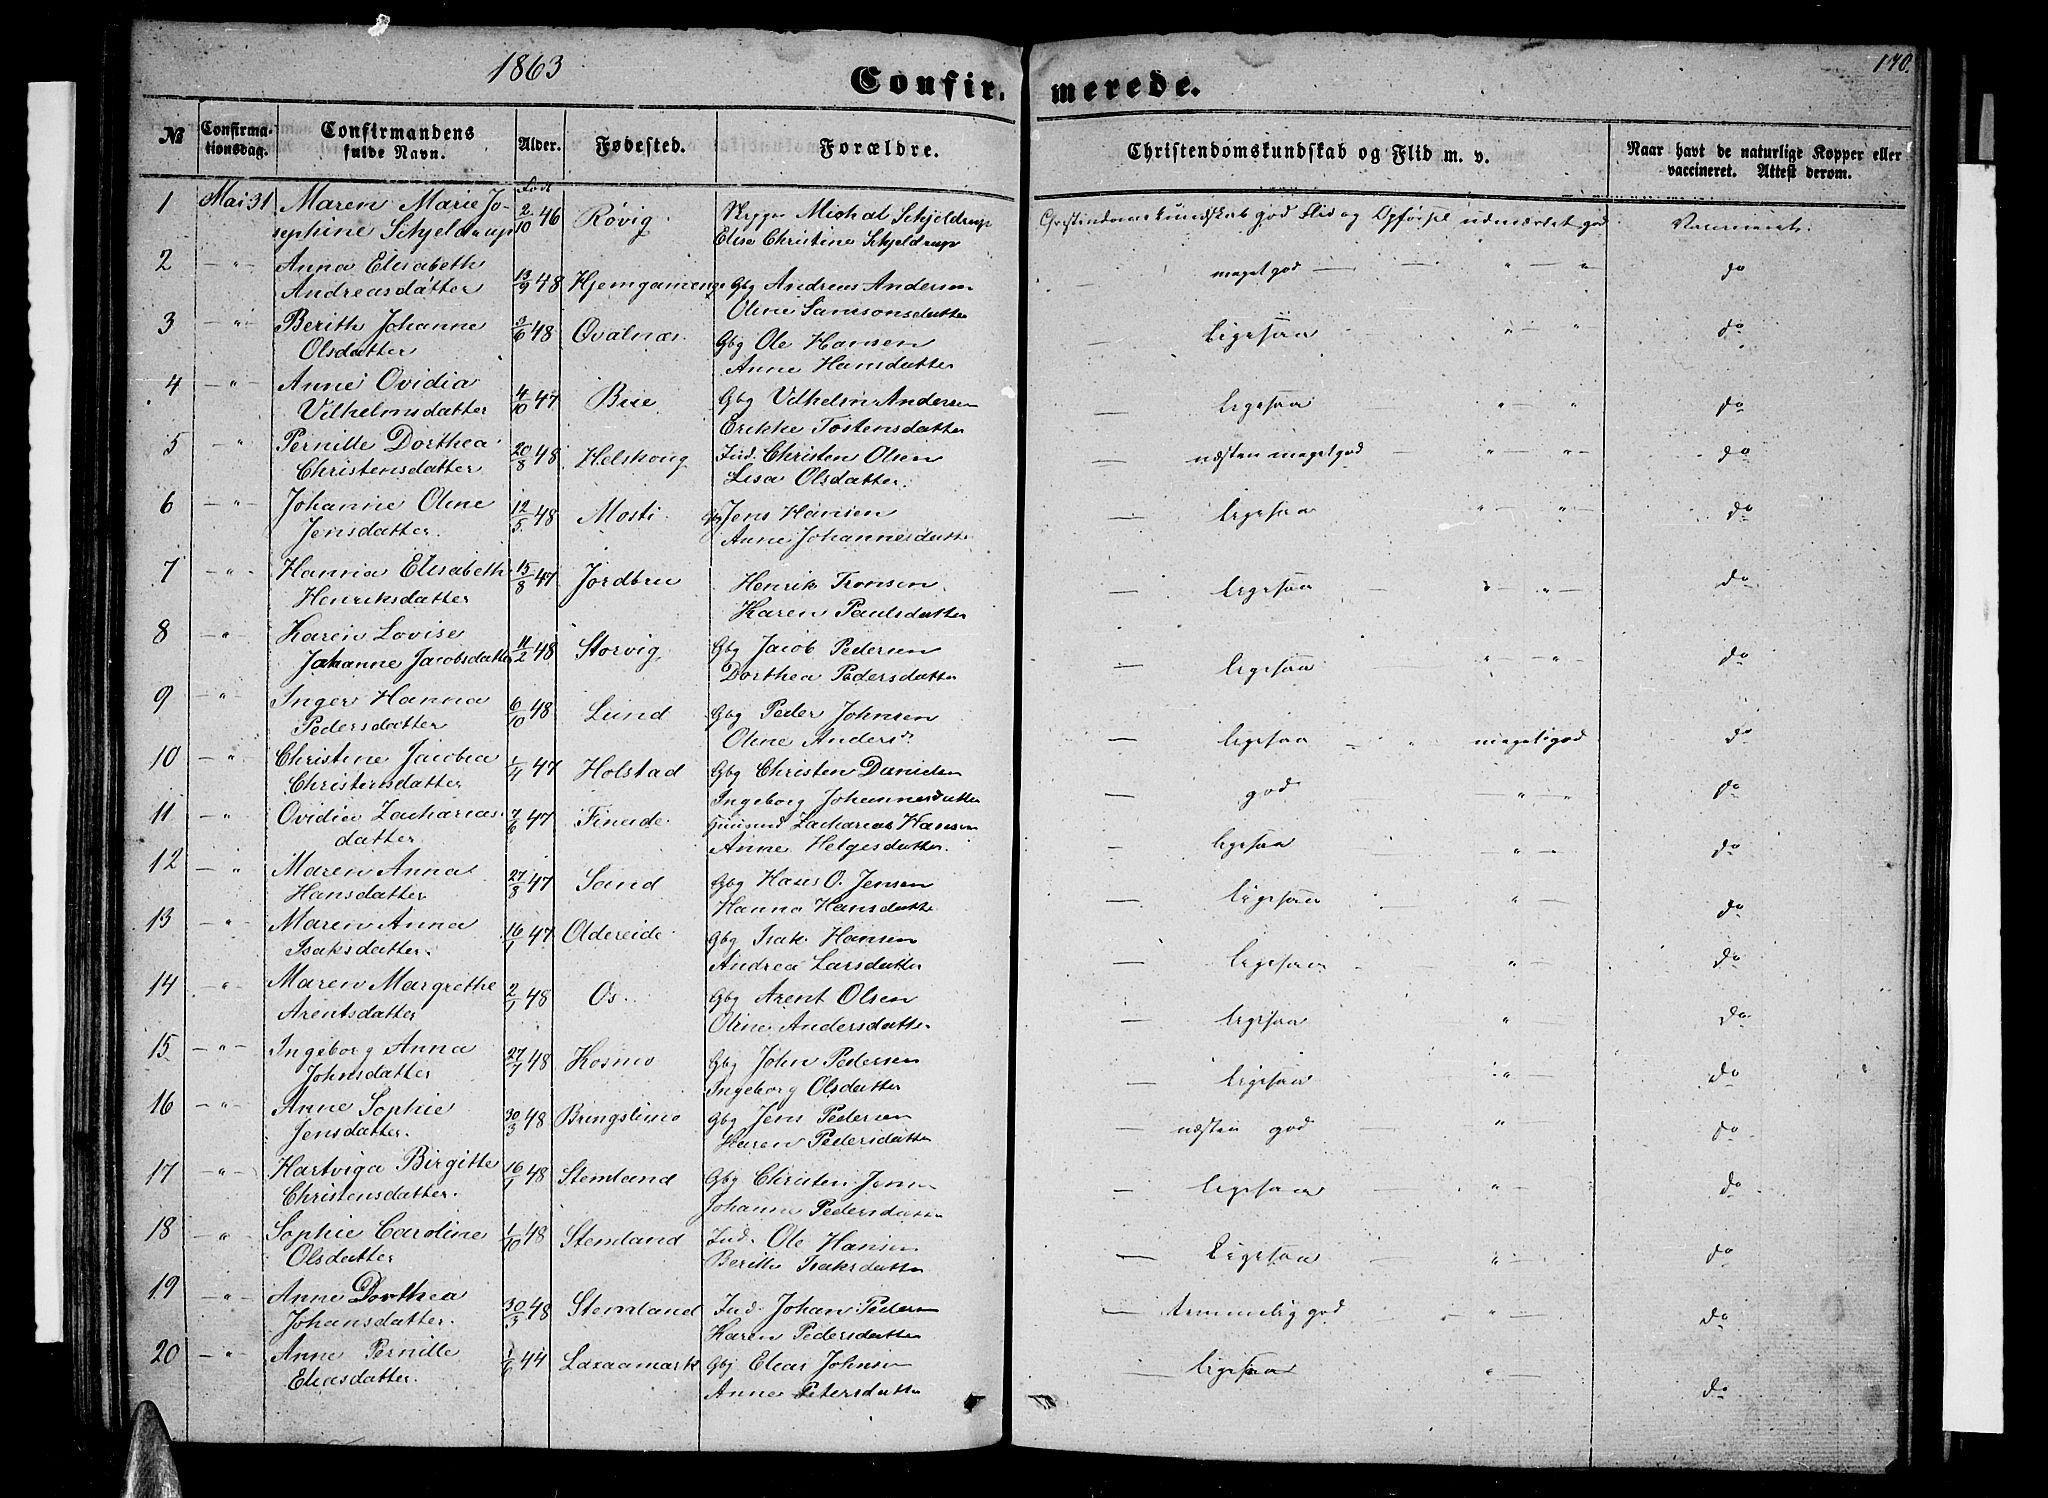 1863
Confir-
merede.
170.
№
Confirma-
tionsdag.
Confirmandens
fulde Navn.
Alder.
Fødested.
Forældre.
Christendomskundskab og Flid m. v.
Naar havt de naturlige Kopper eller
vaccineret. Attest derom.
1 Mai 31 Maren Marie Jo- Født 2/10 46 Røvig Michal Schjeldrup Christendomskundskab god Flid og Opførsel udmærket god Vaccineret.
sephine Schjeldrup Elise Christine Schjeldrup
2 -"- Anna Elisabeth 13/9 48 Gbg Andreas Andersen — meget god — " — " do
Andreasdatter Oline Samsonsdatter
3 -"- Berith Johanne 3/6 48 Øvalnæs Gbg Ole Hansen Ligesaa " — " do
Olsdatter Anne Hansdatter
4 -"- Anne Ovidia 4/10 47 Bue Gbg Vilhelm Andersen — ligesaa — " — " do
Vilhelmsdatter Erikke Tostensdatter
5 " Pernille Dorthea 20/8 48 Ind. Christen Olsen — næsten meget god " — "- do
Christensdatter Lisa Olsdatter.
6 -"- Johanne Oline 12/5 48 Mosti Gbg Jens Hansen — ligesaa " — "- do
Jensdatter. Anne Johannesdatter
7 -"- Hanna Elisabeth 15/8 47 Jordbru Henrik Tronsen — ligesaa — " — " — do
Henriksdatter Karen Paulsdatter
8 -"- Karen Lovise 11/2 48 Storvig Gbg Jacob Pedersen — ligesaa " — " — do
Johanne Jacobsdatter Dorthea Pedersdatter
9 -"- Inger Hanna 6/10 48 Lund Gbg Peder Johnsen — ligesaa — " meget god do
Pedersdatter Oline Andersd.
10 -"- Christine Jacobia 1/4 47 Holstad Gbg Christen Danielsen — god — " — " do
Christensdatter Ingeborg Johannesdatter
11 -"- Ovidia Zacharias- 7/6 47 Fineide Huusmd Zacharias Hansen — ligesaa — " — do
datter. Anne Helgesdatter.
12 -"- Maren Anna 27/8 47 Sand Gbg Hans O. Jensen — ligesaa — " — do
Hansdatter Hanna Hansdatter
13 -"- Maren Anna 16/1 47 Oldereide Gbg Isak Hansen — ligesaa — " — do
Isaksdatter. Andrea Larsdatter
14 -"- Maren Margrethe 2/1 48 Os. Gbg Arent Olsen — ligesaa " do
Arentsdatter Oline Andersdatter
15 -"- Ingeborg Anna 27/7 48 Kosmo Gbg John Pedersen — ligesaa " — do
Johnsdatter Ingeborg Olsdatter
16 -"- Anne Sophie 30/3 48 Bringslimo Gbg Jens Pedersen — næsten god — " — do
Jensdatter. Karen Pedersdatter
17 -"- Hartviga Birgitte 16/1 48 Stemland Gbg Christen Jensen — ligesaa — " — do
Christensdatter. Johanna Pedersdatter
18 -"- Sophie Caroline 1/10 48 Stemland Ind. Ole Hansen — Ligesaa — " — do
Olsdatter Berithe Isaksdatter
19 -"- Anne Dorthea 30/3 48 Stemland Ind. Johan Pedersen — temmelig god — " — do
Johansdatter. Karen Pedersdatter
20 -"- Anne Pernille 1/6 44 Laxaamark Gbg Elias Johnsen — ligesaa " — do
Eliasdatter. Anne Petersdatter